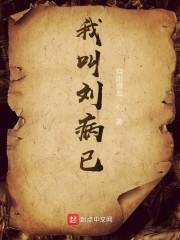 我叫刘病已
起点中文网